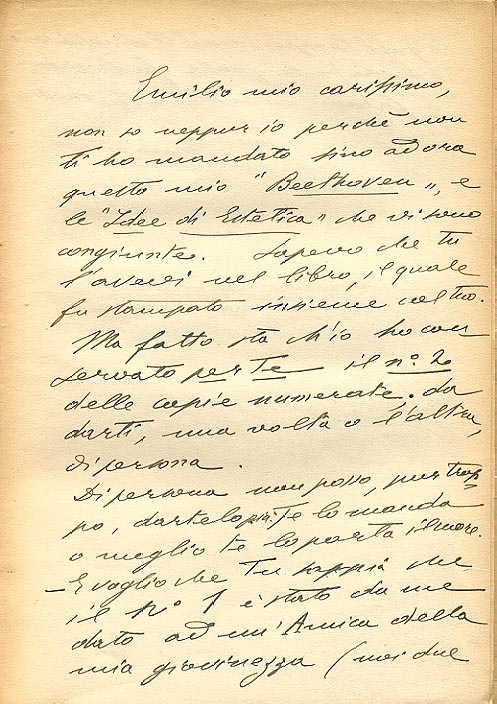 Emilio mio carissimo,
non so neppur io perchè non
ti ho mandato fino ad ora
questo mio "Beethoven", e
le "Idee di Estetica" che vi sono
congiunte. Sapevo che tu
l'avevi nel libro, il quale
fu stampato insieme col tuo.
Ma fatto sta ch'io ho con
servato per te il n.° 2
delle copie numerate. da
darti, una volta o l'altra,
di persona.
Di persona non posso, purtrop=
po, dartelo più. Te lo manda
o meglio te lo porta il
– E voglio che Tu sappia che
il N° 1 è stato da me
dato ad un'Amica della
mia giovinezza (noi due